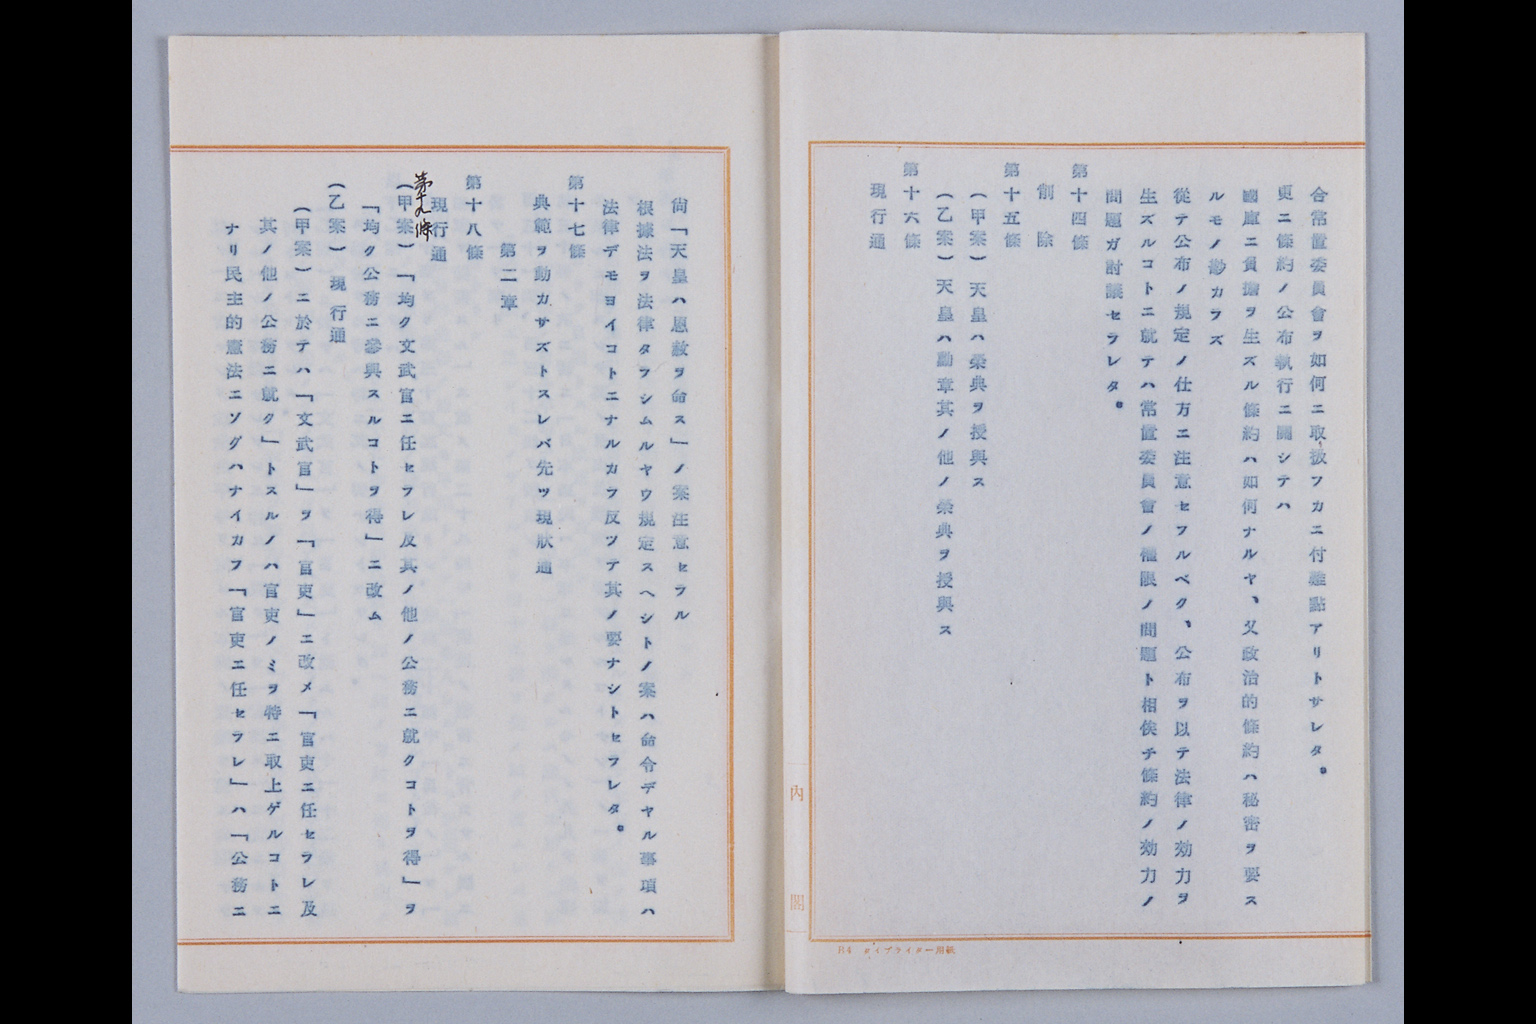 合常置委員會ヲ如何ニ取扱フカニ付難點アリトサレタ。
更ニ條約ノ公布執行ニ關シテハ
國庫ニ負擔ヲ生ズル條約ハ如何ナルヤ、又政治的條約ハ秘密ヲ要ス
ルモノ尠カラズ
從テ公布ノ規定ノ仕方ニ注意セラルベク、公布ヲ以テ法律ノ効力ヲ
生ズルコトニ就テハ常置委員會ノ權限ノ問題ト相俟チ條約ノ効力ノ
問題ガ討議セラレタ。
第十四條
削除
第十五條
(甲案)天皇ハ榮典ヲ授與ス
(乙案)天皇ハ勳章其ノ他ノ榮典ヲ授與ス
第十六條
現行通
內閣
B4 タイプライター用紙
尙「天皇ハ恩赦ヲ命ス」ノ案注意セラル
根據法ヲ法律タラシムルヤウ規定スヘシトノ案ハ命令デヤル事項ハ
法律デモヨイコトニナルカラ反ツテ其ノ要ナシトセラレタ。
第十七條
典範ヲ動カサズトスレバ先ツ現狀通
第二章
第十八條
現行通
第十九條
(甲案)「均ク文武官ニ任セラレ及其ノ他ノ公務ニ就クコトヲ得」ヲ
「均ク公務ニ參與スルコトヲ得」ニ改ム
(乙案)現行通
(甲案)ニ於テハ「文武官」ヲ「官吏」ニ改メ「官吏ニ任セラレ及
其ノ他ノ公務ニ就ク」トスルノハ官吏ノミヲ特ニ取上ゲルコトニ
ナリ民主的憲法ニソグハナイカラ「官吏ニ任セラレ」ハ「公務ニ